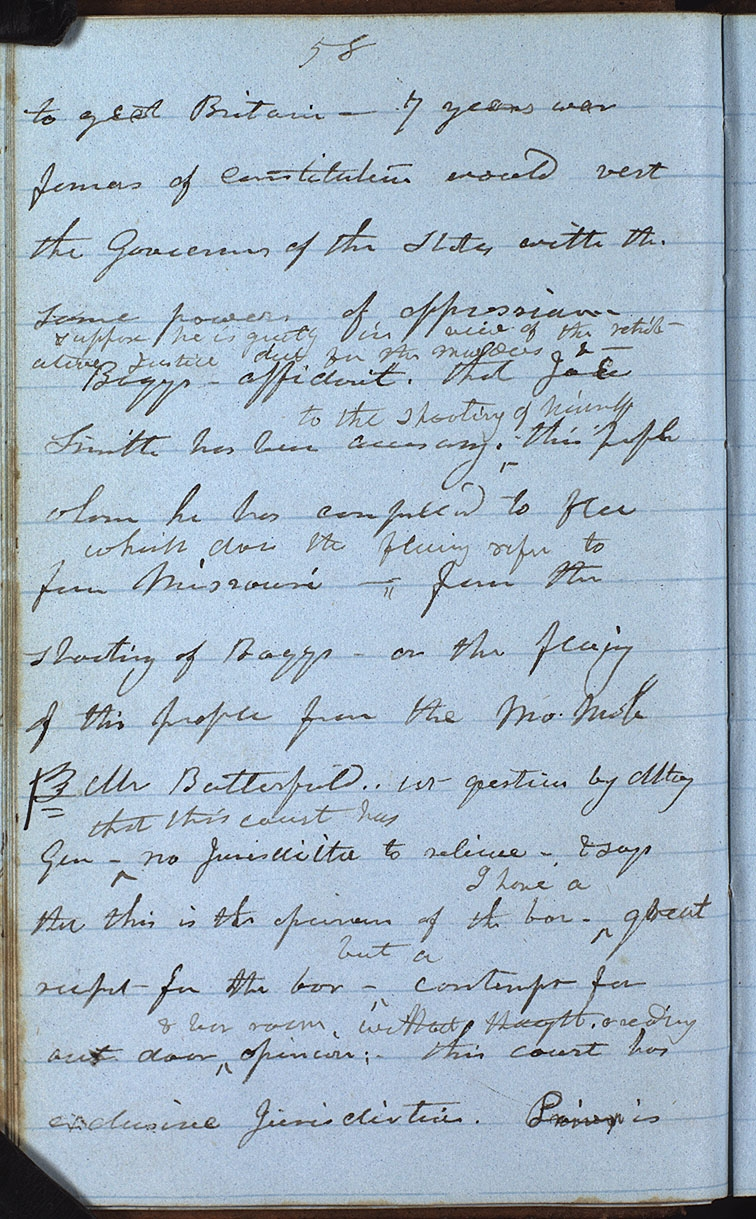 58
to great Britain — 7 years war
framers of Constitution would vest
the Governors of the States with the
same powers of oppression
suppose he is guilty in view of the retali-
ative justice due for the murders &c—
Boggs— affidavit. that Joe
to the shooting of himself
Smith has been accessary. this people
whom he has compelled to flee
which does the fleeing refer to
from Missouri — from the
shooting of Boggs— or the fleeing
of this people from the Mo. Mob
B Mr Butterfield.. 1st question by Attoy
that this court has
Gen— no Jurisdiction to relieve— & says
that this is the opinion of the bar—
I have a
great
respect for the bar—
but a
contempt for
& bar room, without reading
out door opinion:— this court has
exclusive Jurisdiction. is